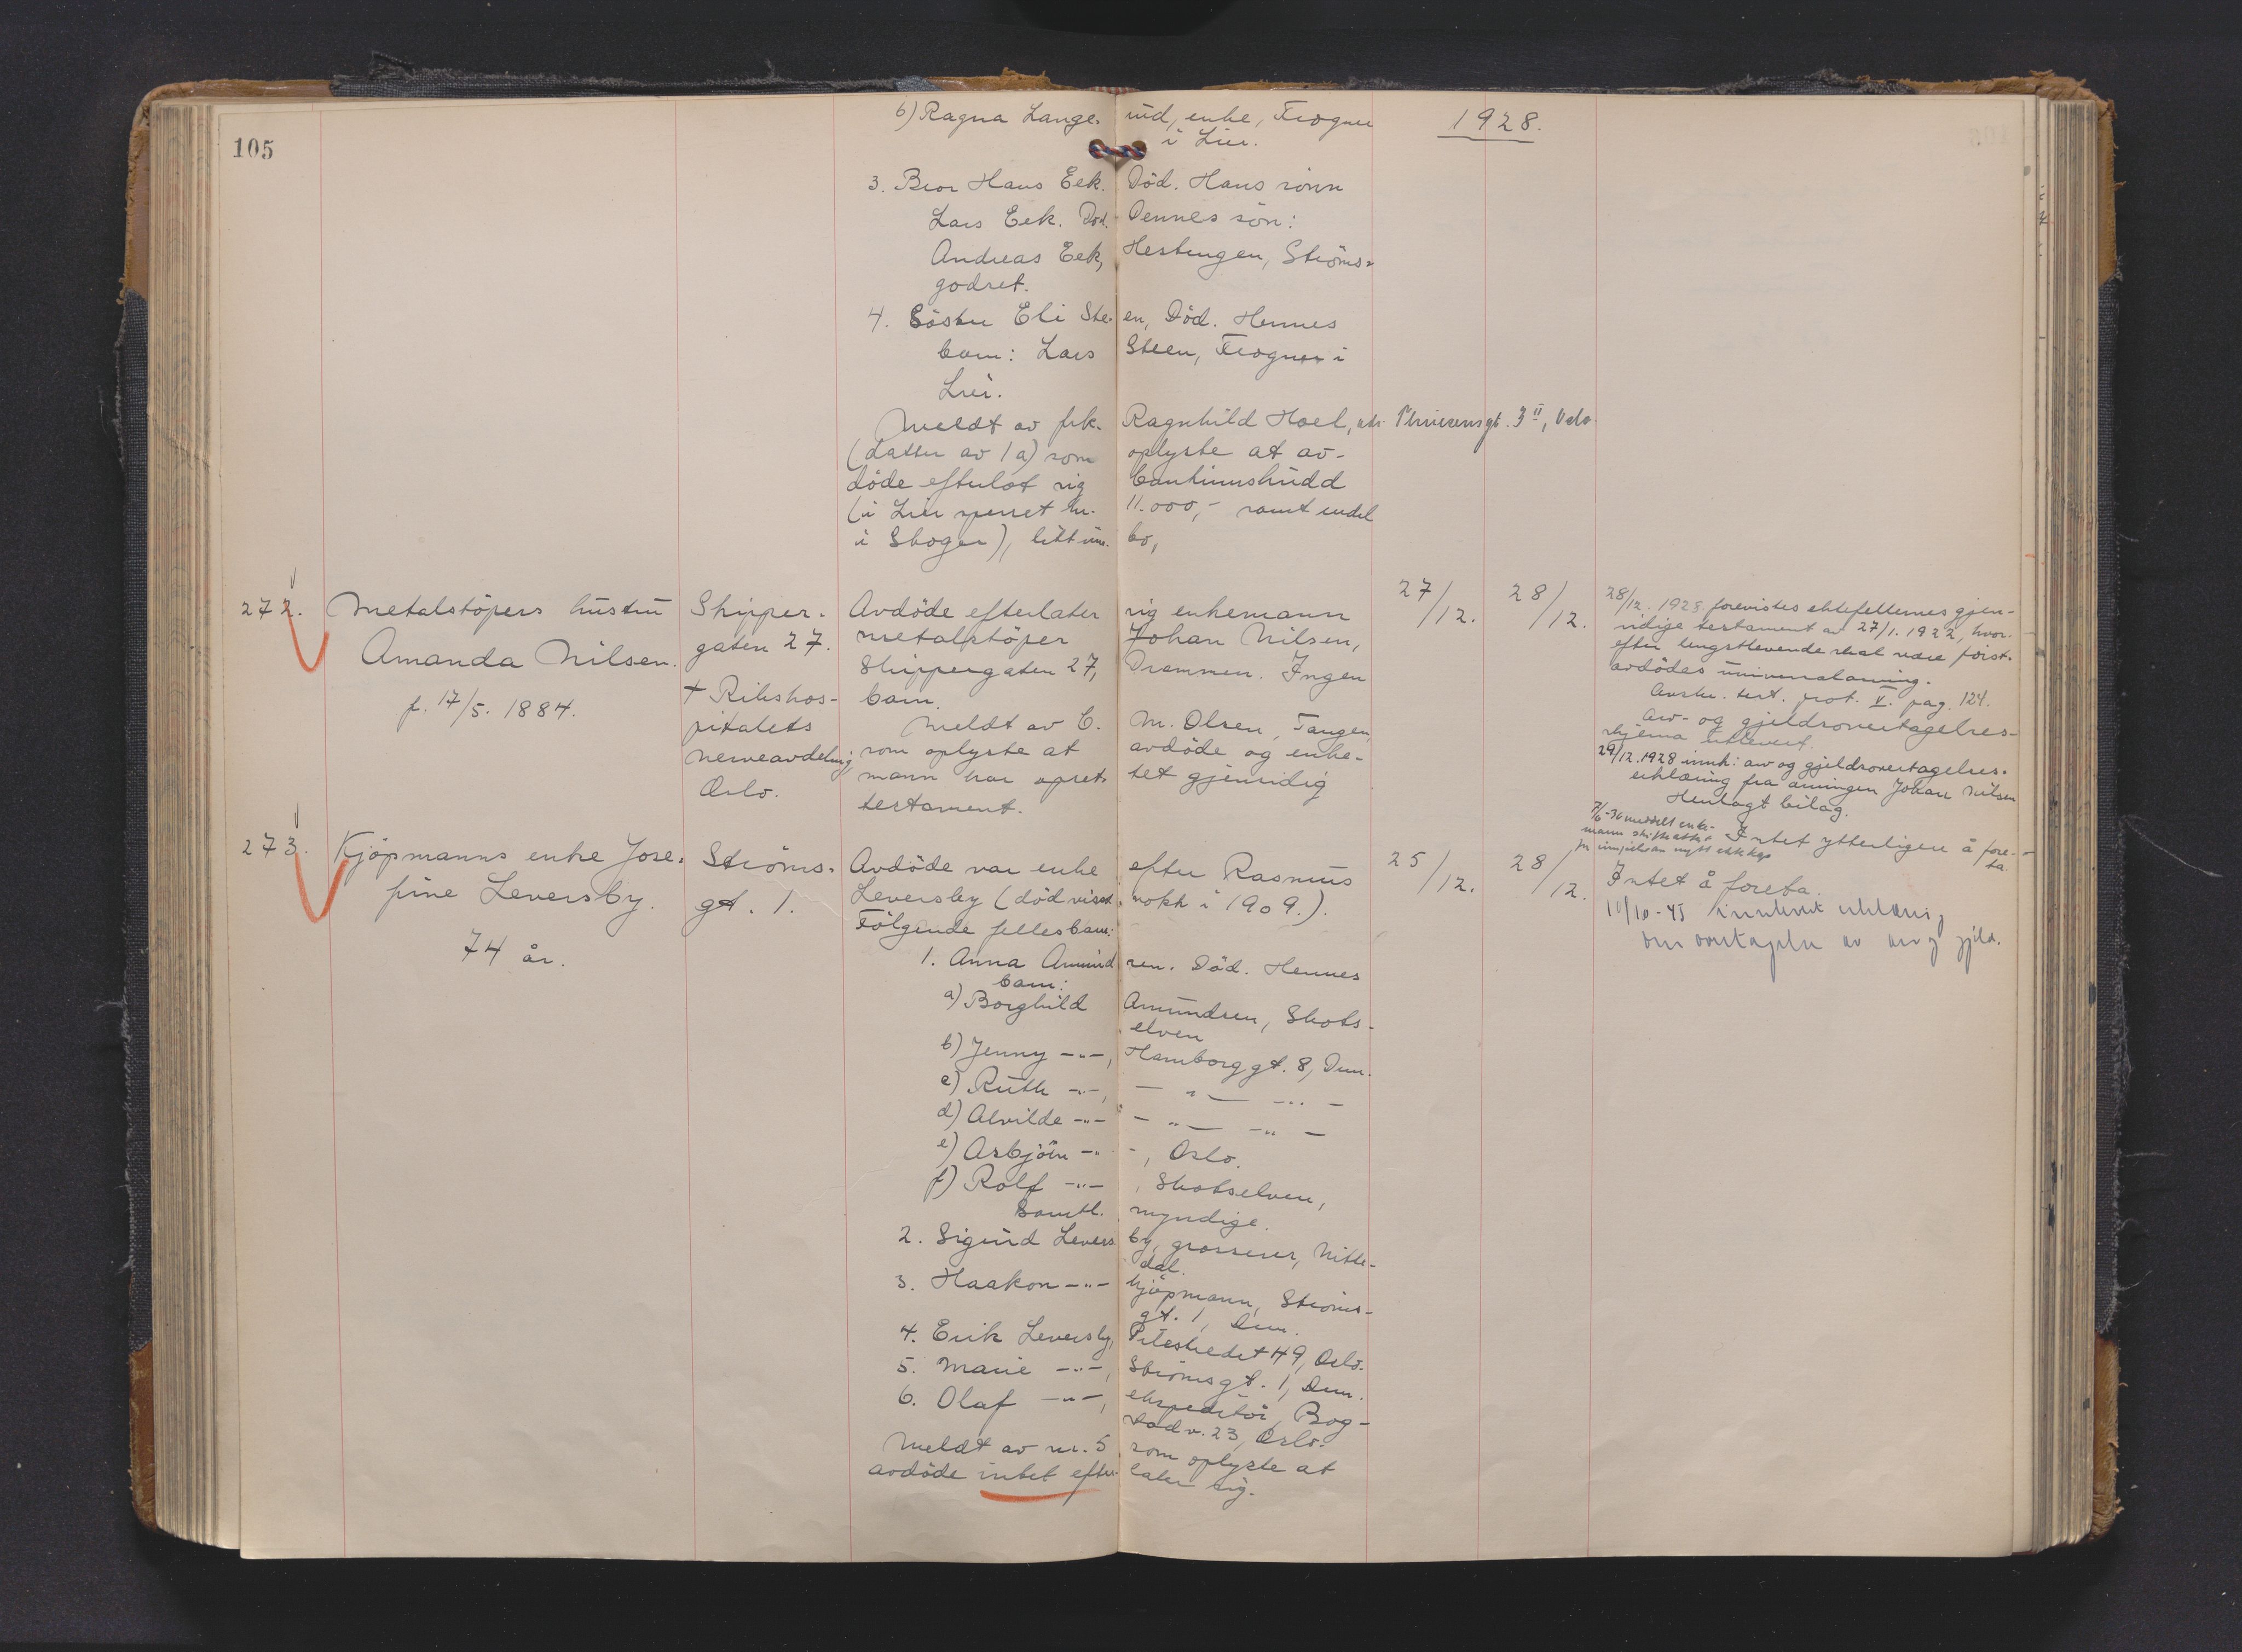 105
1928.
6) Ragna Langerud, enke, Frogner
i Lier.
3. Bror Hans Eek. Död. Hans sönn
Lars Eek. Död. Dennes sön:
Andreas Eek, Hestengen, Ströms-
godset.
4. Söster Eli Steen, Död. Hennes
barn: Lars Steen, Frogner i
Lier.
Meldt av frk. Ragnhild Hoel, adr. 3 II, Oslo
(datter av 1a) som oplyste at av-
döde efterlot sig bankinnskudd
(i Lier sparet kr. 11.000,- samt endel
i Skoger), litt inn- bo,
272. Metalstöpers hustru
Amanda Nilsen.
f. 17/5. 1884.
Skipper-
gaten 27.
† Rikshos-
pitalets
nerveavdeling
Oslo.
Avdöde efterlater sig enkemann
metalstöper Johan Nilsen,
Skippergaten 27, Drammen. Ingen
barn.
Meldt av C. M. Olsen, Tangen,
som oplyste at avdöde og enke-
mann har oprettet gjensidig
testament.
27/12.
28/12.
28/12. 1928 forevistes ektefellernes gjen-
sidige testament av 27/1. 1922, hvor-
efter lengstlevende skal være först-
avdödes universalarving.
Anm. test. prot. V. pag. 124.
Arv- og gjeldsovertagelses-
skjema utlevert.
29/12. 1928 innk: arv og gjeldsovertagelses-
erklæring fra arvingen Johan Nilsen
Henlagt bilag.
7/6-36 meddelt enke-
mann skifteattest
for inngåelse av nytt ekteskap
Intet ytterligere å fore-
ta.
273. Kjöpmanns enke Jose-
fine Leversby.
74 år.
Ströms-
gt. 1.
Avdöde var enke efter Rasmus
Leversby (död visst nokk i 1909.).
Fölgende fellesbarn:
1. Anna Amundsen. Död. Hennes
barn:
a) Borghild Amundsen, Skots-
elven
b) Jenny -"-, Hamborggt. 8, Dmn.
c) Ruth -"-, - " - -"- -
d) Alvilde -"- - " - -"- -
e) Asbjörn -"-, Oslo.
f) Rolf -"-, Skotselven,
Samtl. myndige.
2. Sigurd Leversby, grosserer, Nitte-
dal.
3. Haakon -"- kjöpmann, Ströms-
gt. 1, Dmn.
4. Erik Leversby, Pilestredet 49, Oslo.
5. Marie -"-, Strömsgt. 1, Dmn.
6. Olaf -"-, ekspeditör, Bog-
stadv. 23, Oslo.
Meldt av nr. 5 som oplyste at
avdöde intet efterlater sig.
25/12.
28/12.
Intet å foreta.
10/10-45 innlevert erklæring
om overtagelse av arv og gjeld.